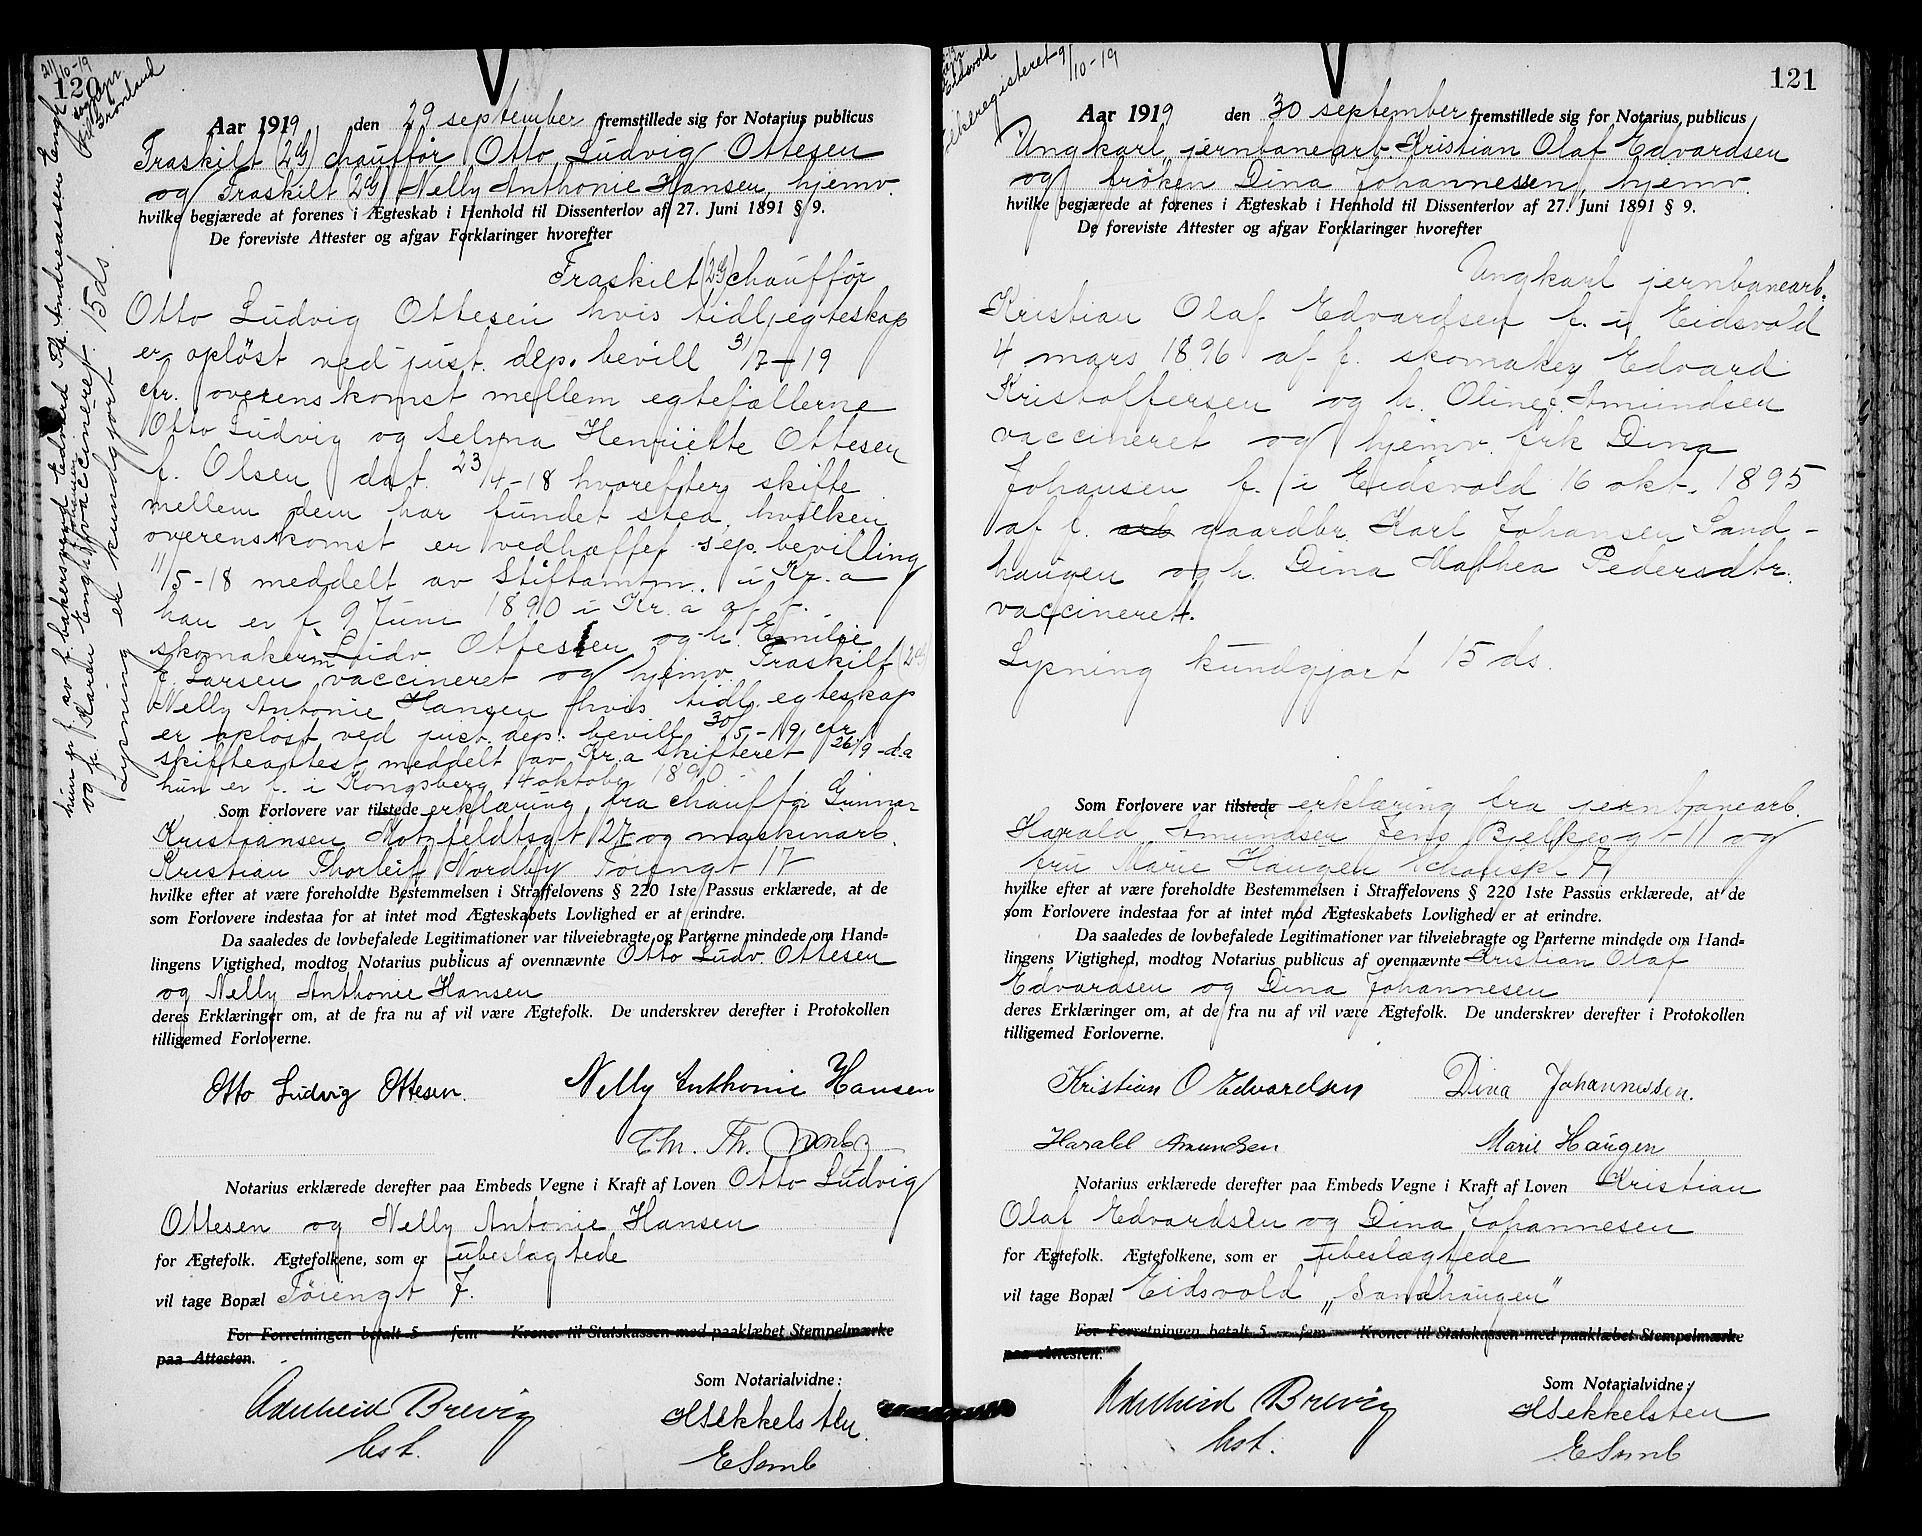 120
21/10-19
Grönland
Aar 1919 den 29 september fremstillede sig for Notarius publicus
Fraskilt (2 G) chauffør Otto Ludvig Ottesen
og Fraskilt (2 G) Nelly Anthonie Hansen, hjemv.
hvilke begjærede at forenes i Ægteskab i Henhold til Dissenterlov af 27. Juni 1891 § 9.
De foreviste Attester og afgav Forklaringer hvorefter
Fraskilt (2 G) chauffør
Otto Ludvig Ottesen hvis tidl. egteskap
er opløst ved just. dep. bevill 31/7-19
cfr. overenskomst mellem egtefællerne
Otto Ludvig og Selma Henriette Ottesen
f. Olsen dat. 23/4-18 hvorefter skifte
mellem dem har fundet sted, hvilken
overenskomst er vedhæftet sep. bevilling
11/5-18 meddelt av Stiftamtm. i Kr.a
han er f. 9 Juni 1890 i Kr.a af f.
skomakerm Ludv. Ottesen og h. Emilie
f. Larsen, vaccineret og hjemv. Fraskilt (2 G)
Nelly Antonie Hansen hvis tidl. egteskap
er opløst ved just. dep. bevill 30/5-19, cfr
skifteattest meddelt av Kr.a Skifteret 26/9 d.a
hun er f. i Kongsberg 14 oktober 1890
hun er f. av f. bakersvend Edvard Th. Andreassen Engh
og h. Karen Engh f. vaccineret. 15 ds.
Lysning er kundgjort
Som Forlovere var tilstede erklæring fra chauffør Gunnar
Kristiansen Motzfeldtsgt 27 og maskinarb.
Kristian Thorleif Nordby Tøiengt 17
hvilke efter at være foreholdte Bestemmelsen i Straffelovens § 220 1ste Passus erklærede, at de
som Forlovere indestaa for at intet mod Ægteskabets Lovlighed er at erindre.
Da saaledes de lovbefalede Legitimationer var tilveiebragte og Parterne mindede om Hand=
lingens Vigtighed, modtog Notarius publicus af ovennævnte Otto Ludv. Ottesen
og Nelly Anthonie Hansen
deres Erklæringer om, at de fra nu af vil være Ægtefolk. De underskrev derefter i Protokollen
tilligemed Forloverne.
Otto Ludvig Ottesen. Nelly Anthonie Hansen
Chr. Th.
Notarius erklærede derefter paa Embeds Vegne i Kraft af Loven Otto Ludvig
Ottesen og Nelly Antonie Hansen
for Ægtefolk. Ægtefolkene, som er ubeslagtede
vil tage Bopæl Tøiengt 7.
For Forretningen betalt 5 — fem — Kroner til Statskassen med paaklæbet Stempelmærke
paa Attesten.
Som Notarialvidne:
Adelheid Brevig HSekkelsten.
cst. ESemb
121
Eidsvold
9/10-19
Aar 1919 den 30 september fremstillede sig for Notarius publicus
Ungkarl jernbanearb. Kristian Olaf Edvardsen
og frøken Dina Johannessen, hjemv.
hvilke begjærede at forenes i Ægteskab i Henhold til Dissenterlov af 27. Juni 1891 § 9.
De foreviste Attester og afgav Forklaringer hvorefter
Ungkarl jernbanearb.
Kristian Olaf Edvardsen f. i Eidsvold
4 mars 1896 af f. skomaker Edvard
Kristoffersen og h. Oline f. Amundsen
vaccineret og hjemv. frk Dina
Johansen f. i Eidsvold 16 okt. 1895
af f. arb gaardbr. Karl Johansen Sand-
haugen og h. Dina Mathea Pedersdtr.
vaccineret.
Lysning kundgjort 15 ds.
Som Forlovere var tilstede erklæring fra jernbanearb.
Harald Amundsen Jens Bjelkesgt 11 og
fru Marie Haugen Schouspl 7
hvilke efter at være foreholdte Bestemmelsen i Straffelovens § 220 1ste Passus erklærede, at de
som Forlovere indestaa for at intet mod Ægteskabets Lovlighed er at erindre.
Da saaledes de lovbefalede Legitimationer var tilveiebragte og Parterne mindede om Hand=
lingens Vigtighed, modtog Notarius publicus af ovennævnte Kristian Olaf
Edvardsen og Dina Johannesen
deres Erklæringer om, at de fra nu af vil være Ægtefolk. De underskrev derefter i Protokollen
tilligemed Forloverne.
Kristian O Edvardsen Dina Johannessen.
Harald Amundsen Marie Haugen
Notarius erklærede derefter paa Embeds Vegne i Kraft af Loven Kristian
Olaf Edvardsen og Dina Johannesen
for Ægtefolk. Ægtefolkene, som er ubeslægtede
vil tage Bopæl Eidsvold „Sandhaugen"
For Forretningen betalt 5 — fem — Kroner til Statskassen med paaklæbet Stempelmærke
paa Attesten.
Som Notarialvidne:
Adelheid Brevig HSekkelsten
cst. ESemb